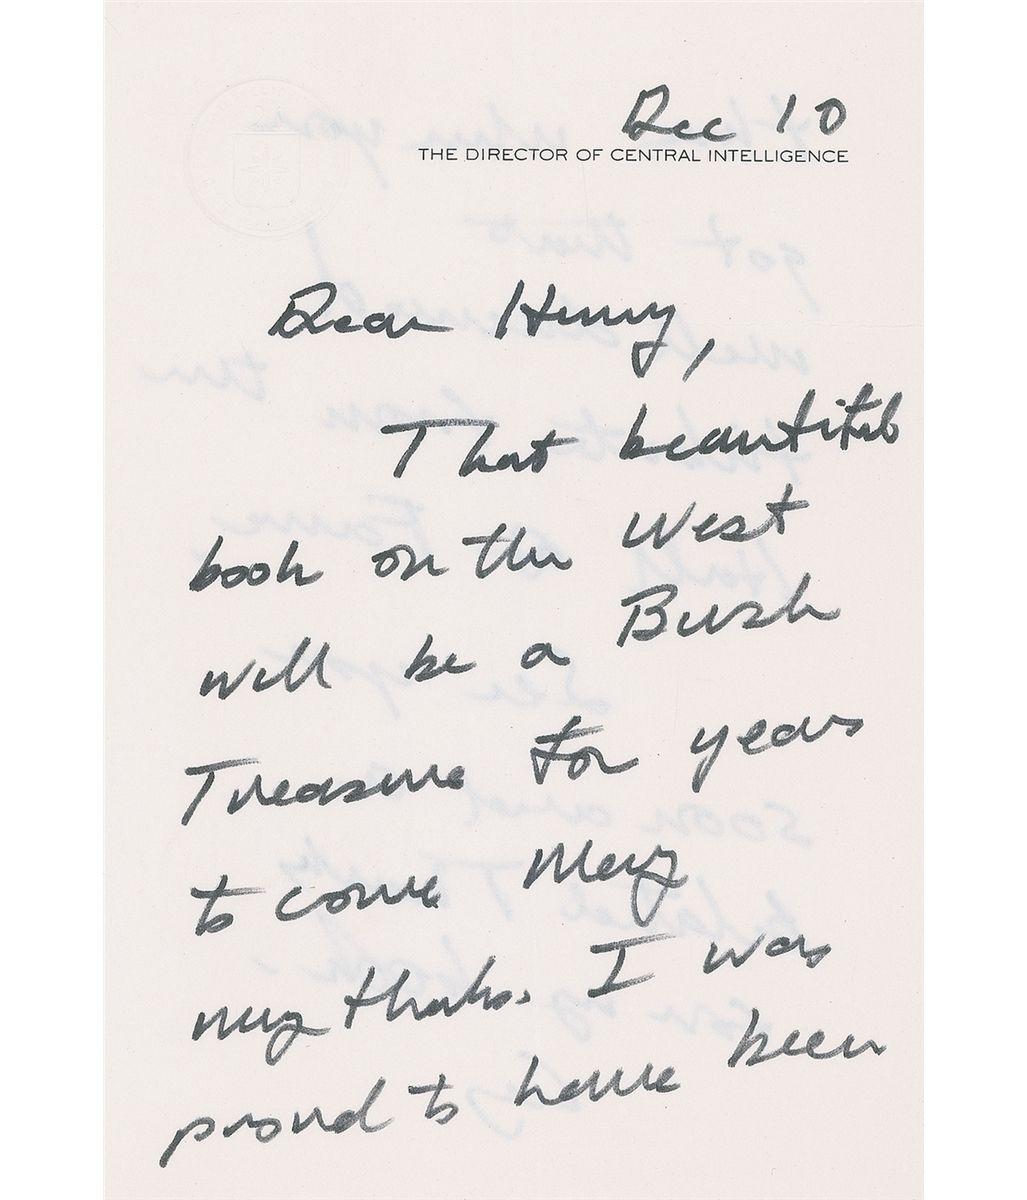 Dec 10
THE DIRECTOR OF CENTRAL INTELLIGENCE
Dear Henry,
That beautiful
book on the West
will be a Bush
Treasure for years
to come Many
many thanks. I was
proud to have been